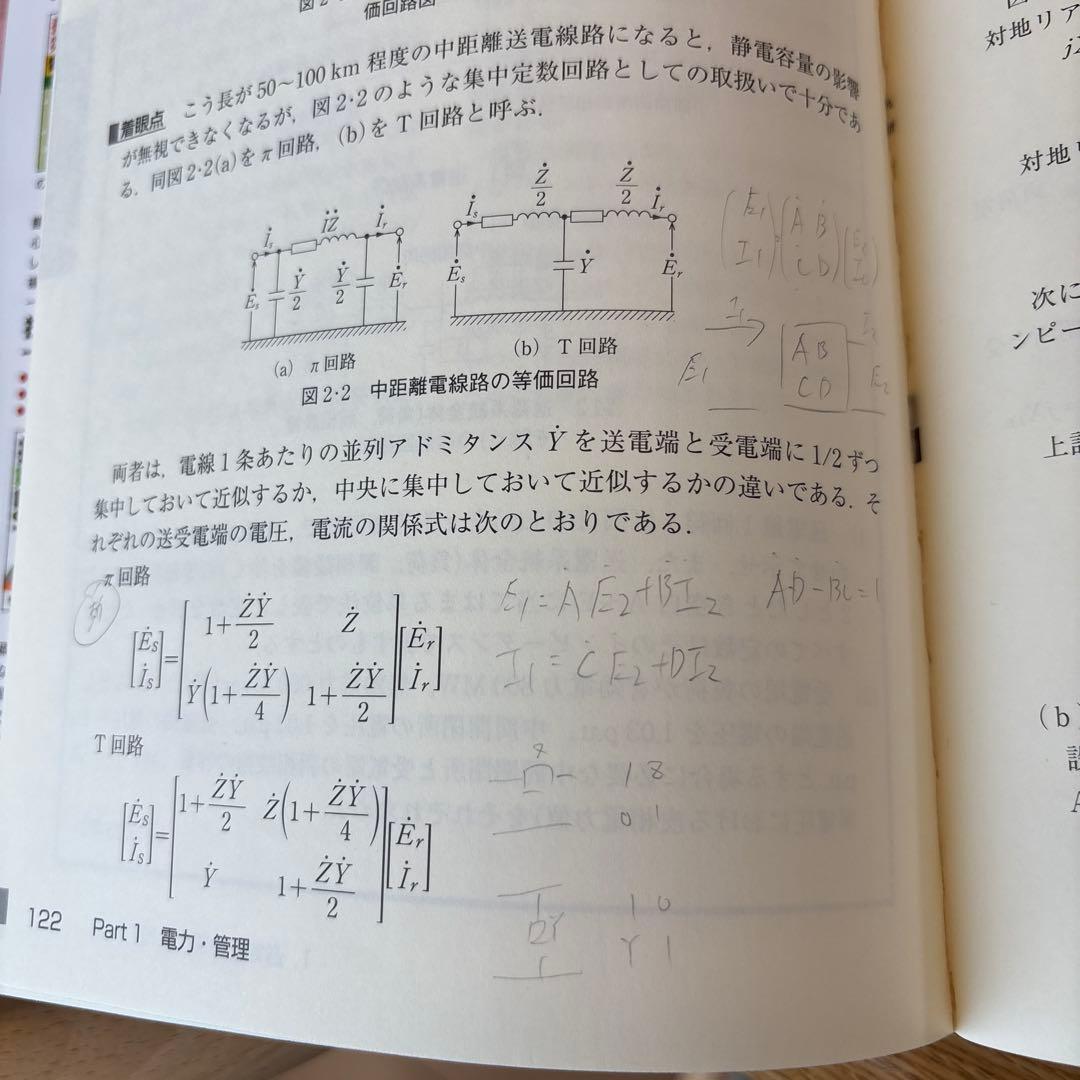 価回路図
着眼点 こう長が50～100 km 程度の中距離送電線路になると，静電容量の影響
が無視できなくなるが，図2・2のような集中定数回路としての取扱いで十分であ
る．同図2・2(a)をπ回路，(b)をT回路と呼ぶ．
İs İŻ İr
Ės Ẏ/2 Ẏ/2 Ėr
(a) π回路
Ż/2 Ż/2
İs İr
Ės Ẏ Ėr
(b) T回路
図2・2 中距離電線路の等価回路
(E₁ I₁) (Ȧ Ḃ Ċ Ḋ)
I₁
E₁
A B
C D
I₂
E₂
両者は，電線1条あたりの並列アドミタンス Ẏ を送電端と受電端に1/2ずつ
集中しておいて近似するか，中央に集中しておいて近似するかの違いである．そ
れぞれの送受電端の電圧，電流の関係式は次のとおりである．
π回路
[Ės İs]=[1+ŻẎ/2 Ż Ẏ(1+ŻẎ/4) 1+ŻẎ/2][Ėr İr]
E₁=ȦE₂+ḂI₂ ȦḊ-ḂĊ=1
I₁=CE₂+DI₂
T回路
[Ės İs]=[1+ŻẎ/2 Ż(1+ŻẎ/4) Ẏ 1+ŻẎ/2][Ėr İr]
0 1
1 0
Y 1
122 Part 1 電力・管理
対地リア
対地リ
次に
ンピー
上記
(b)